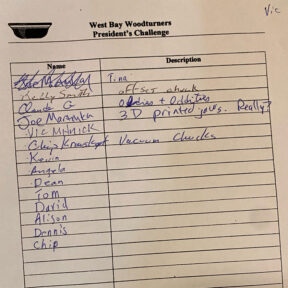 Vic
West Bay Woodturners
President's Challenge
Name Description
Tina
Smith offset chuck
Claude G + Oddities
Joe 3D printed yours. Really?
Vic
Chip Vacuum Chucks
Kevin
Angela
Dean
Tom
David
Alison
Dennis
Chip